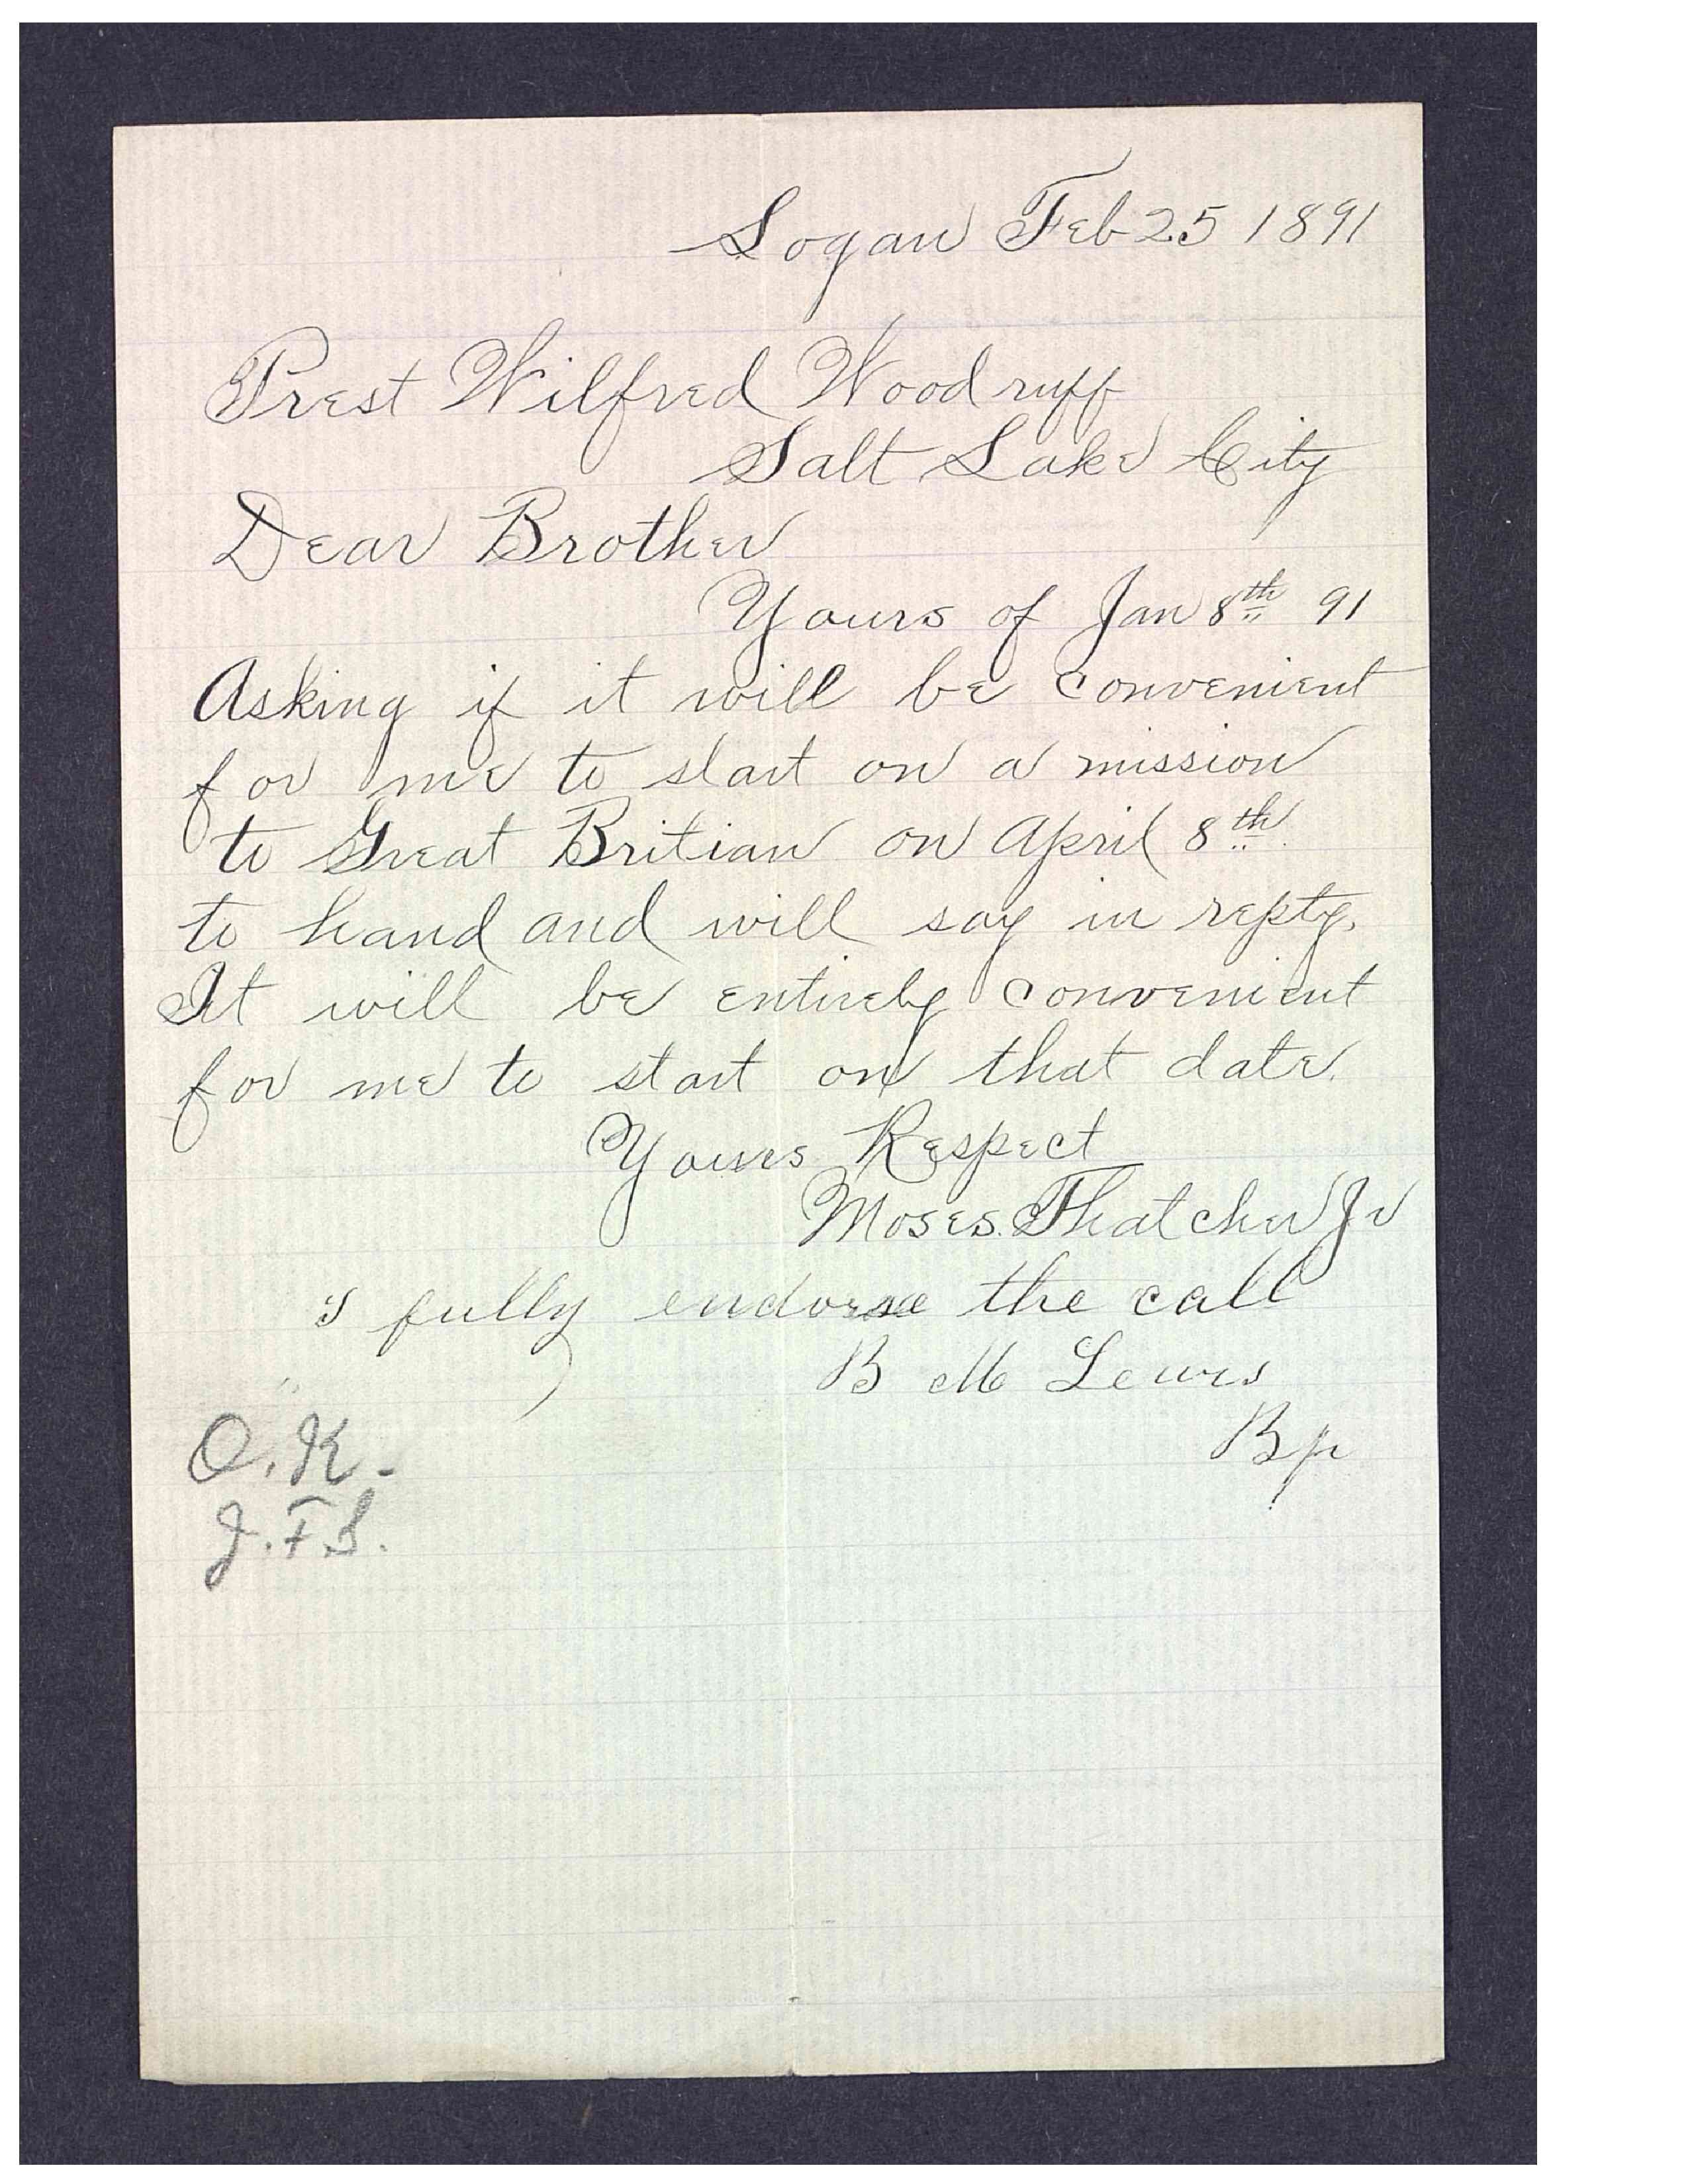 Logan Feb 25 1891
Prest Wilfred Woodruff
Salt Lake City
Dear Brother
Yours of Jan 8th 91
Asking if it will be convenient
for me to start on a mission
to Great Britian on April 8th.
to hand and will say in reply.
It will be entirely convenient
for me to start on that date.
Yours Respect
Moses. Thatcher Jr
I fully endorse the call
B M Lewis
Bp
O.K.-
J.F.S.